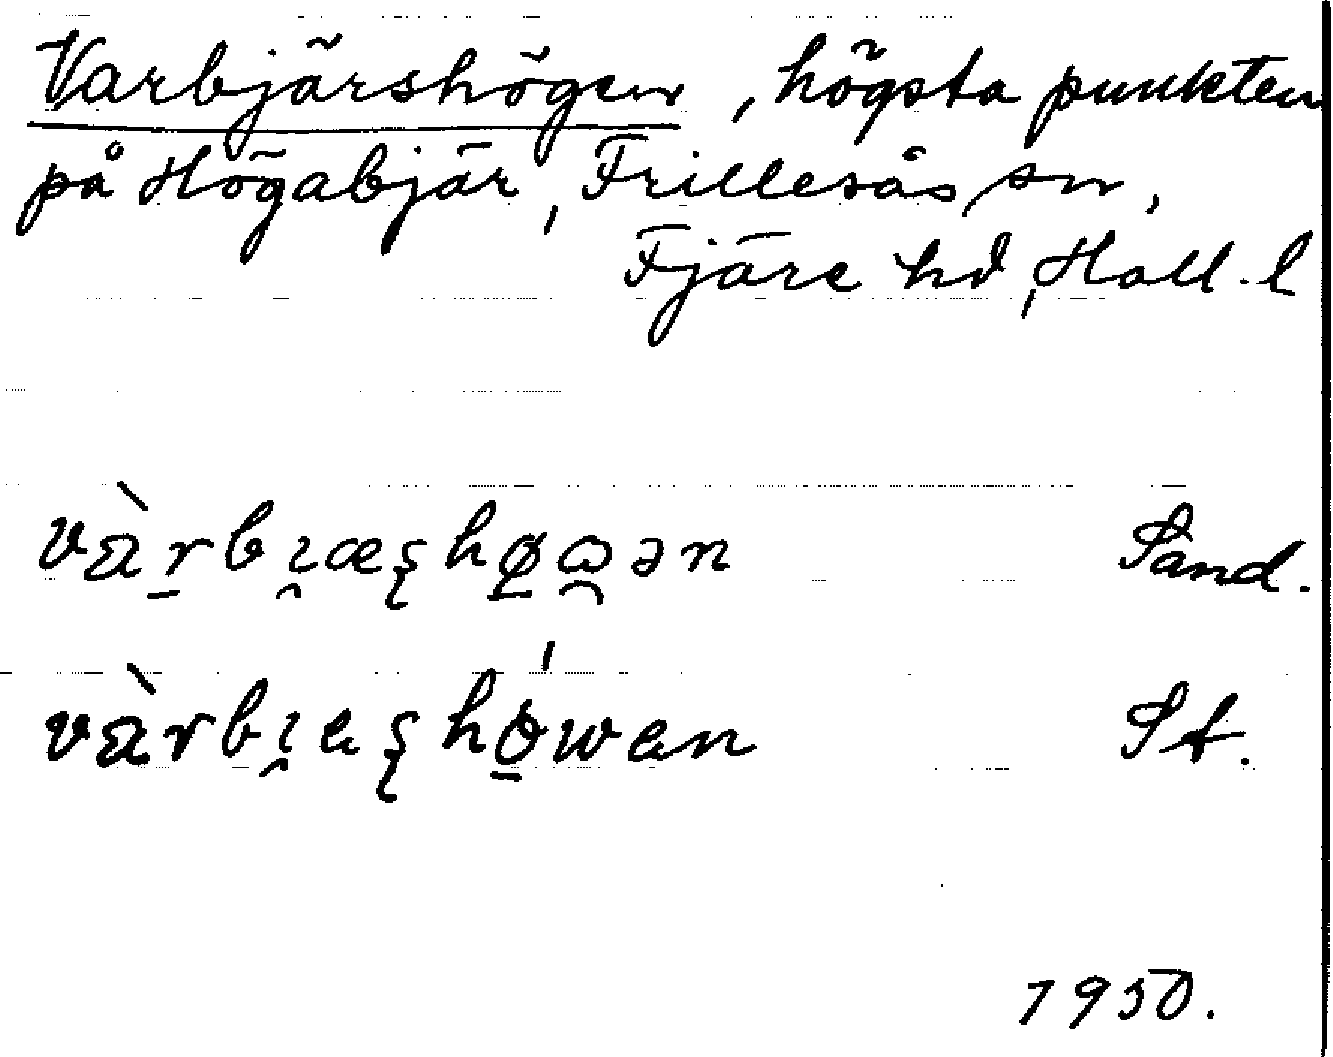 Varbjärshögen, högsta punkten
på Högabjär, Frillesås sn,
Fjäre hd, Hall. l
Sand.
St.
1950.